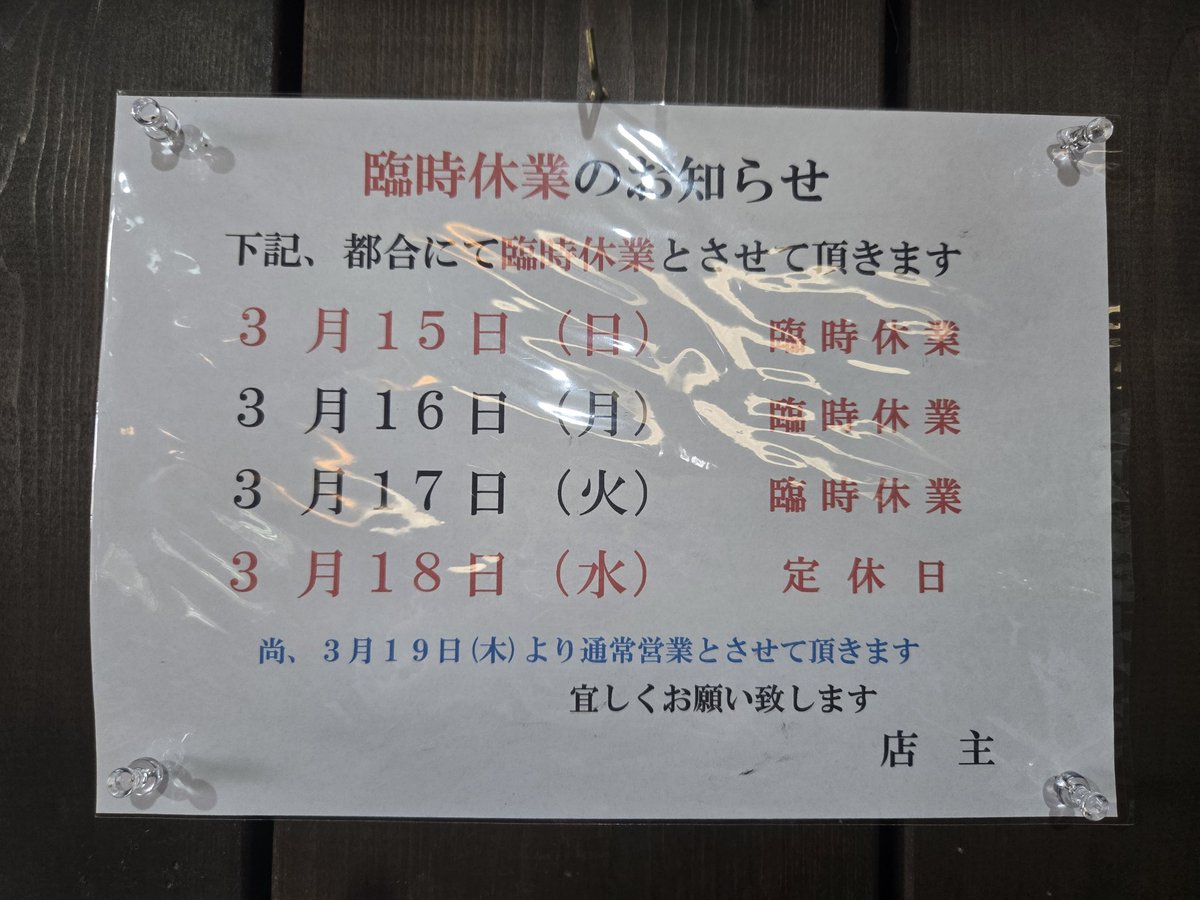 臨時休業のお知らせ
下記、都合にて臨時休業とさせて頂きます
３月１５日（日） 臨時休業
３月１６日（月） 臨時休業
３月１７日（火） 臨時休業
３月１８日（水） 定休日
尚、３月１９日(木)より通常営業とさせて頂きます
宜しくお願い致します
店主